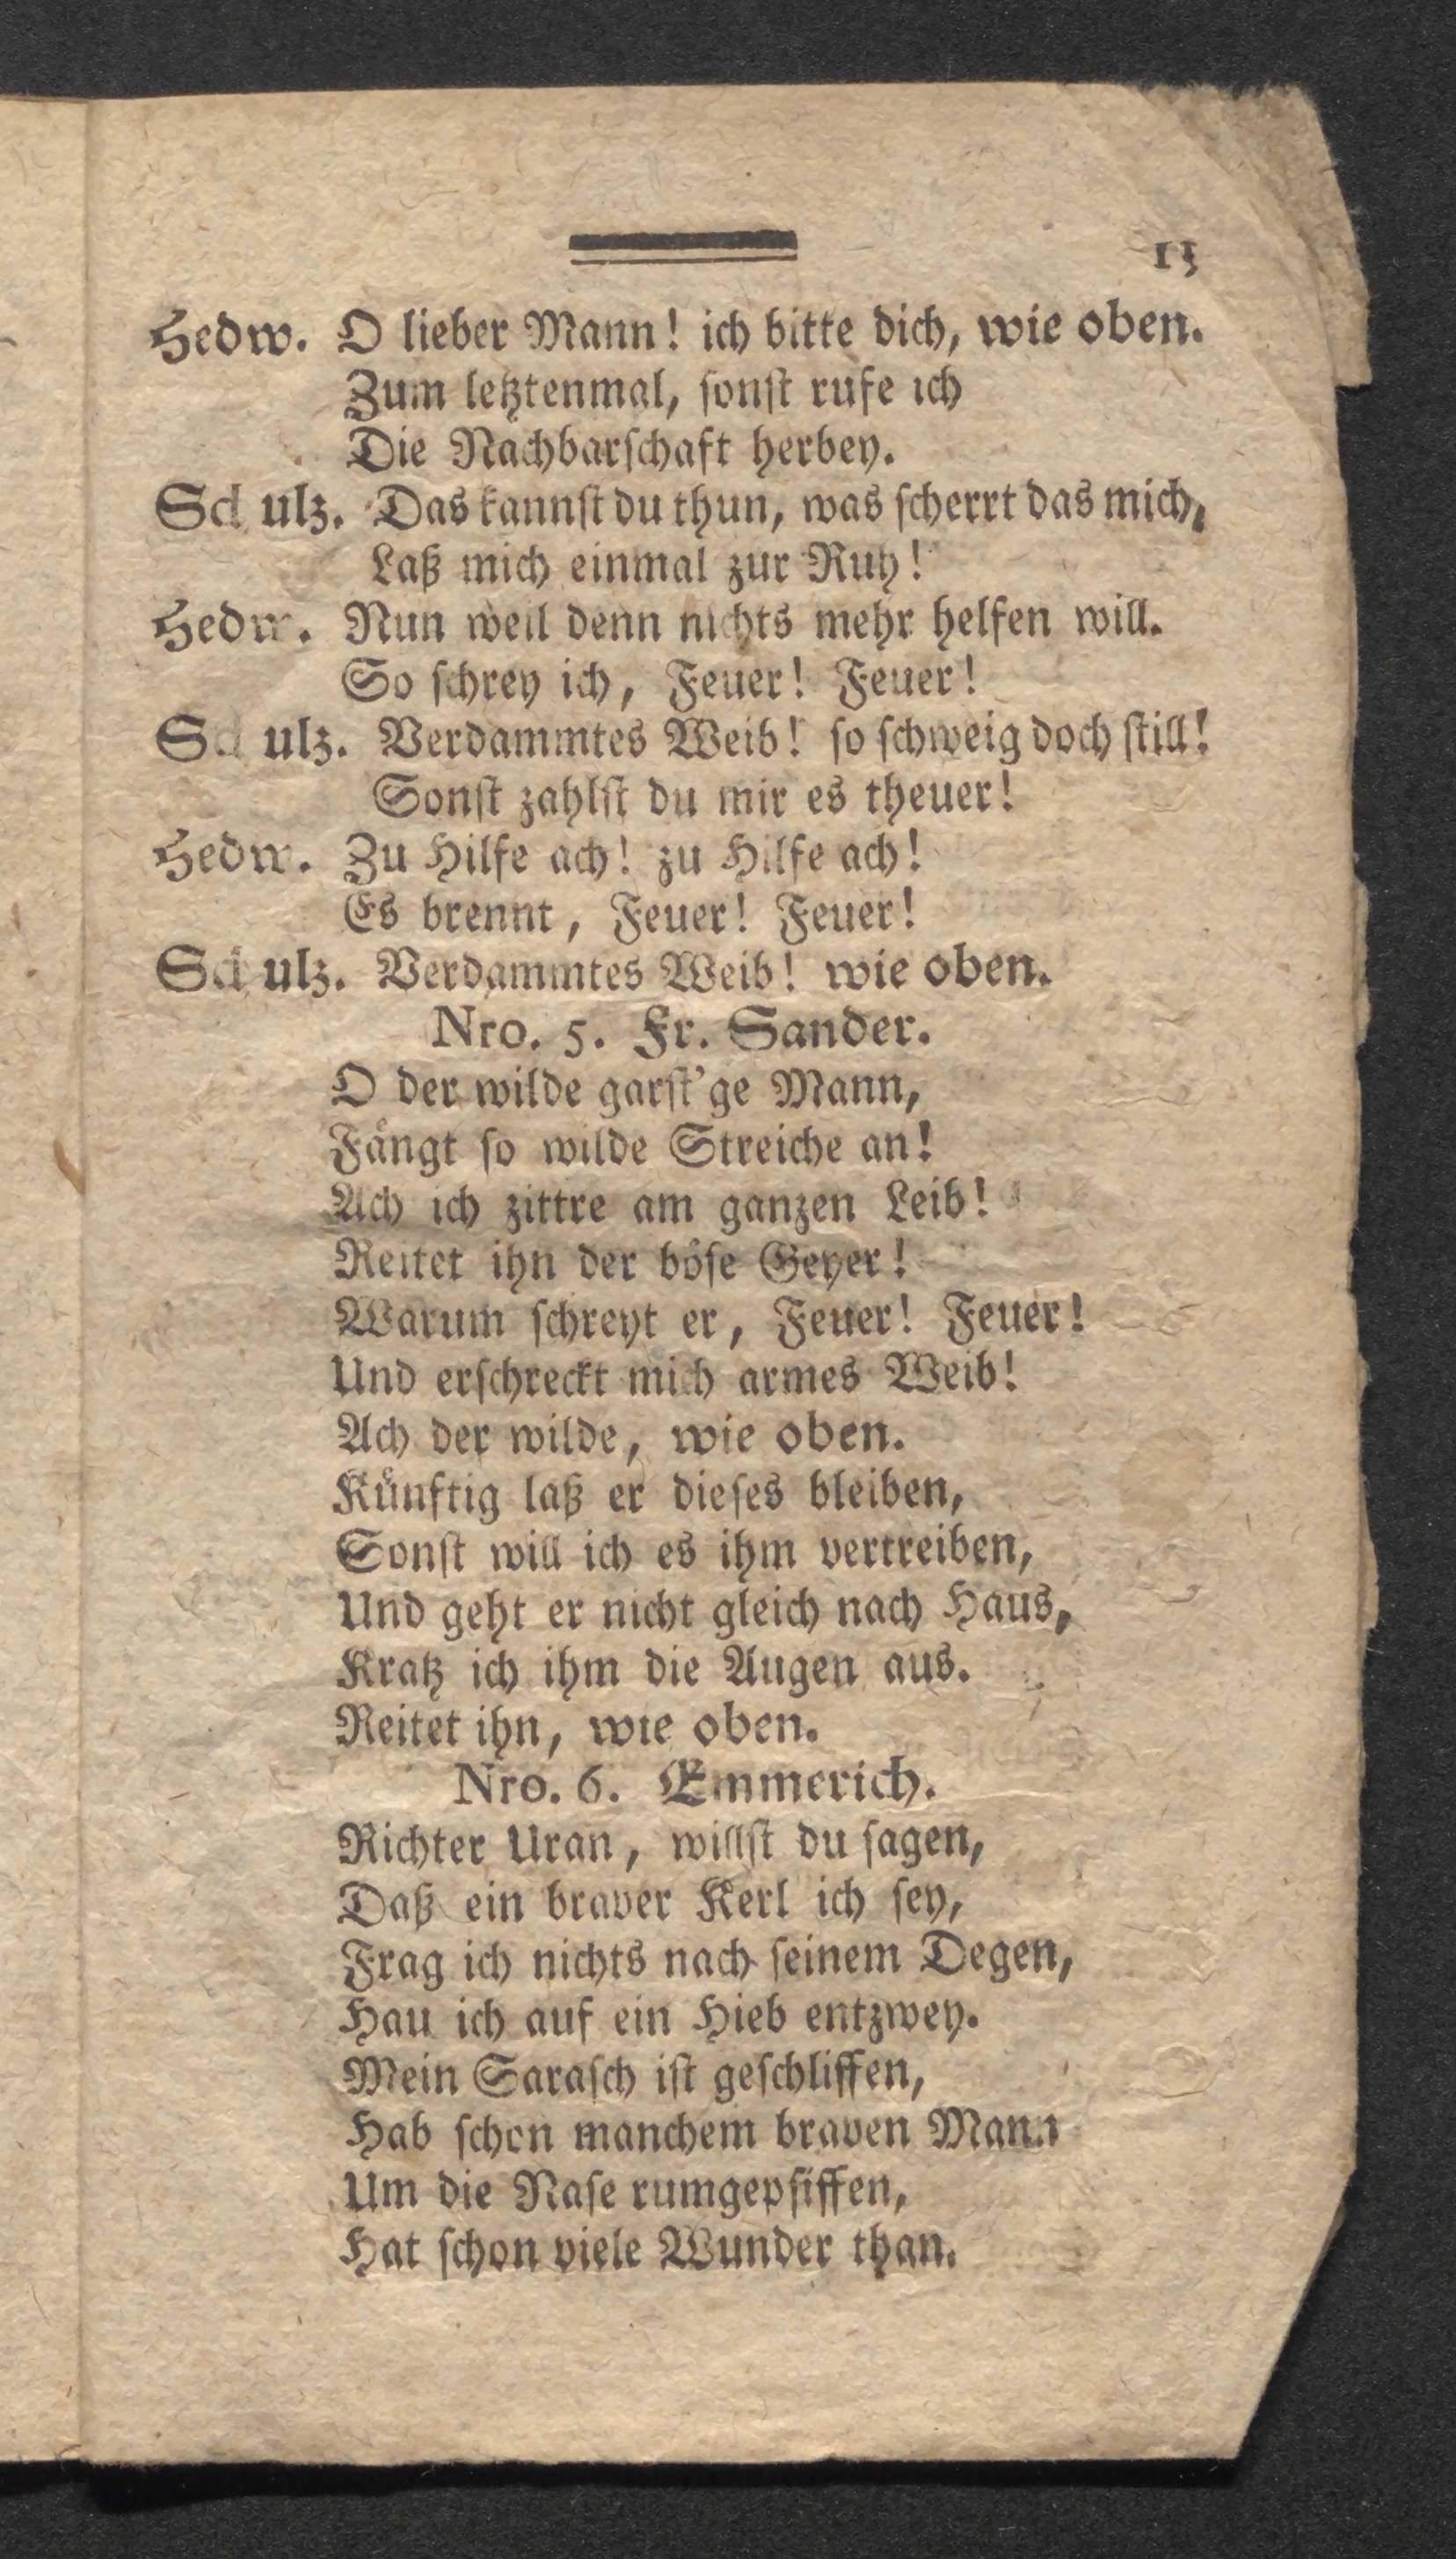 13
Hedw. O lieber Mann! ich bitte dich, wie oben.
Zum letztenmal, ſonſt rufe ich
Die Nachbarſchaft herbey.
Schulz. Das kannſt du thun, was ſcherrt das mich,
Laß mich einmal zur Ruh!
Hedw. Nun weil denn nichts mehr helfen will.
So ſchrey ich, Feuer! Feuer!
Schulz. Verdammtes Weib! ſo ſchweig doch ſtill!
Sonſt zahlſt du mir es theuer!
Hedw. Zu Hilfe ach! zu Hilfe ach!
Es brennt, Feuer! Feuer!
Schulz. Verdammtes Weib! wie oben.
Nro. 5. Fr. Sander.
O der wilde garſt'ge Mann,
Fängt ſo wilde Streiche an!
Ach ich zittre am ganzen Leib!
Reitet ihn der böſe Geyer!
Warum ſchreyt er, Feuer! Feuer!
Und erſchreckt mich armes Weib!
Ach der wilde, wie oben.
Künftig laß er dieſes bleiben,
Sonſt will ich es ihm vertreiben,
Und geht er nicht gleich nach Haus,
Kratz ich ihm die Augen aus.
Reitet ihn, wie oben.
Nro. 6. Emmerich.
Richter Uran, willſt du ſagen,
Daß ein braver Kerl ich ſey,
Frag ich nichts nach ſeinem Degen,
Hau ich auf ein Hieb entzwey.
Mein Saraſch iſt geſchliffen,
Hab ſchon manchem braven Mann
Um die Naſe rumgepfiffen,
Hat ſchon viele Wunder than.